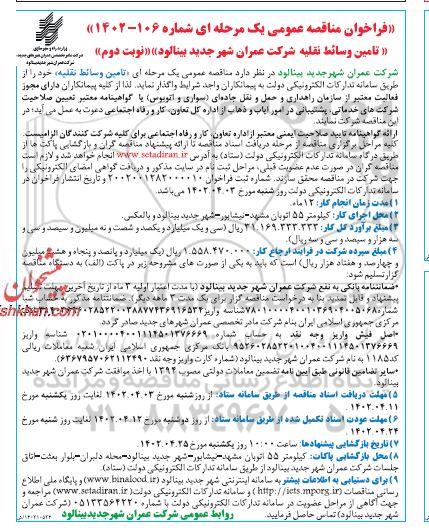 وزارت راه و شهرسازی
شرکت عمران شهر جدید بینالود
«فراخوان مناقصه عمومی یک مرحله ای شماره ۱۰۶-۱۴۰۲»
« تامین وسائط نقلیه شرکت عمران شهر جدید بینالود» «نوبت دوم»
شرکت عمران شهرجدید بینالود در نظر دارد مناقصه عمومی یک مرحله ای «تامین وسائط نقلیه» خود را از
طریق سامانه تدارکات الکترونیکی دولت به پیمانکاران واجد شرایط واگذار نماید. لذا از کلیه پیمانکاران دارای مجوز
فعالیت معتبر از سازمان راهداری و حمل و نقل جاده‌ای (سواری و اتوبوس) یا گواهینامه معتبر تعیین صلاحیت
شرکت های خدماتی، پشتیبانی در امور ایاب و ذهاب از اداره کل تعاون، کار و رفاه اجتماعی دعوت به عمل می آید؛ در
این مناقصه شرکت نمایند.
ارائه گواهینامه تایید صلاحیت ایمنی معتبر از اداره تعاون، کار و رفاه اجتماعی برای کلیه شرکت کنندگان الزامیست.
کلیه مراحل برگزاری مناقصه از مرحله دریافت اسناد مناقصه تا ارائه پیشنهاد مناقصه گران و بازگشایی پاکت ها از
طریق درگاه سامانه تدارکات الکترونیکی دولت (ستاد) به آدرس www.setadiran.ir انجام خواهد شد و لازم است
مناقصه گران در صورت عدم عضویت قبلی، مراحل ثبت نام در سایت مذکور و دریافت گواهی امضای الکترونیکی را
جهت شرکت در مناقصه محقق سازند. شماره ثبت فراخوان و تاریخ انتشار فراخوان در
سامانه تدارکات الکترونیکی دولت روز شنبه مورخ ۱۴۰۲.۰۴.۰۳ می باشد.
۱)مدت زمان انجام کار: ۱۲ماه.
۲)محل اجرای کار: کیلومتر ۵۵ اتوبان مشهد-نیشابور-شهر جدید بینالود و بالعکس.
۳)مبلغ برآورد کل کار: ۳۱.۱۶۹.۳۳۳.۳۳۳ ریال (سی و یک میلیارد و یکصد و شصت و نه میلیون و سیصد و سی و
سه هزار و سیصد و سی و سه ریال).
۴)مبلغ سپرده شرکت در فرآیند ارجاع کار: ۱.۵۵۸.۴۷۰.۰۰۰ ریال (یک میلیارد و پانصد و پنجاه و هشت میلیون
و چهارصد و هفتاد هزار ریال) است که باید به یکی از صورت های مشروحه زیر در پاکت (الف) به دستگاه مناقصه
گزار تسلیم شود.
*ضمانتنامه بانکی به نفع شرکت عمران شهر جدید بینالود (با مدت اعتبار اولیه ۳ ماه از تاریخ آخرین مهلت
پیشنهاد و قابل تمدید بنا به درخواست مناقصه گزار برای یک مدت ۳ ماهه دیگر). ضمانتنامه مذکور به حساب شبا
مرکزی جمهوری اسلامی ایران بنام شرکت مادر تخصصی عمران شهرهای جدید صادر گردد.
*اصل فیش واریز وجه نقد به حساب شماره
بانک مرکزی جمهوری اسلامی ایران شعبه معاملات ریالی
کد۱۱۸۵ به نام شرکت عمران شهر جدید بینالود
*سایر تضامین قانونی طبق آیین نامه تضمین معاملات دولتی مصوب ۱۳۹۴ با اخذ موافقت شرکت عمران شهر جدید
بینالود.
۵)مهلت دریافت اسناد مناقصه از طریق سامانه ستاد: از روز شنبه مورخ ۱۴۰۲.۰۴.۰۳ لغایت روز یکشنبه مورخ
۱۴۰۲.۰۴.۱۱
۶)مهلت عودت اسناد تکمیل شده از طریق سامانه ستاد: از روز دوشنبه مورخ ۱۴۰۲.۰۴.۱۲ لغایت روز شنبه مورخ
۱۴۰۲.۰۴.۲۴
۷)تاریخ بازگشایی پیشنهادها: ساعت ۱۰:۰۰ روز یکشنبه مورخ ۱۴۰۲.۰۴.۲۵
۸)محل بازگشایی پاکات: کیلومتر ۵۵ اتوبان مشهد-نیشابور-شهر جدید بینالود-محله دلبران-بلوار بعثت-اتاق
جلسات شرکت عمران شهر جدید بینالود از طریق سامانه تدارکات الکترونیکی دولت.
۹)برای دستیابی به اطلاعات بیشتر به سامانه اینترنتی شهر جدید بینالود (www.binalood.ir) و پایگاه ملی اطلاع
رسانی مناقصات (http://iets.mporg.ir) و سامانه تدارکات الکترونیکی دولت (www.setadiran.ir) مراجعه و
جهت آگاهی از مراحل عضویت در سامانه تدارکات الکترونیکی دولت با شماره تماس
(ستاد) تماس حاصل فرمایید.
روابط عمومی شرکت عمران شهرجدیدبینالود